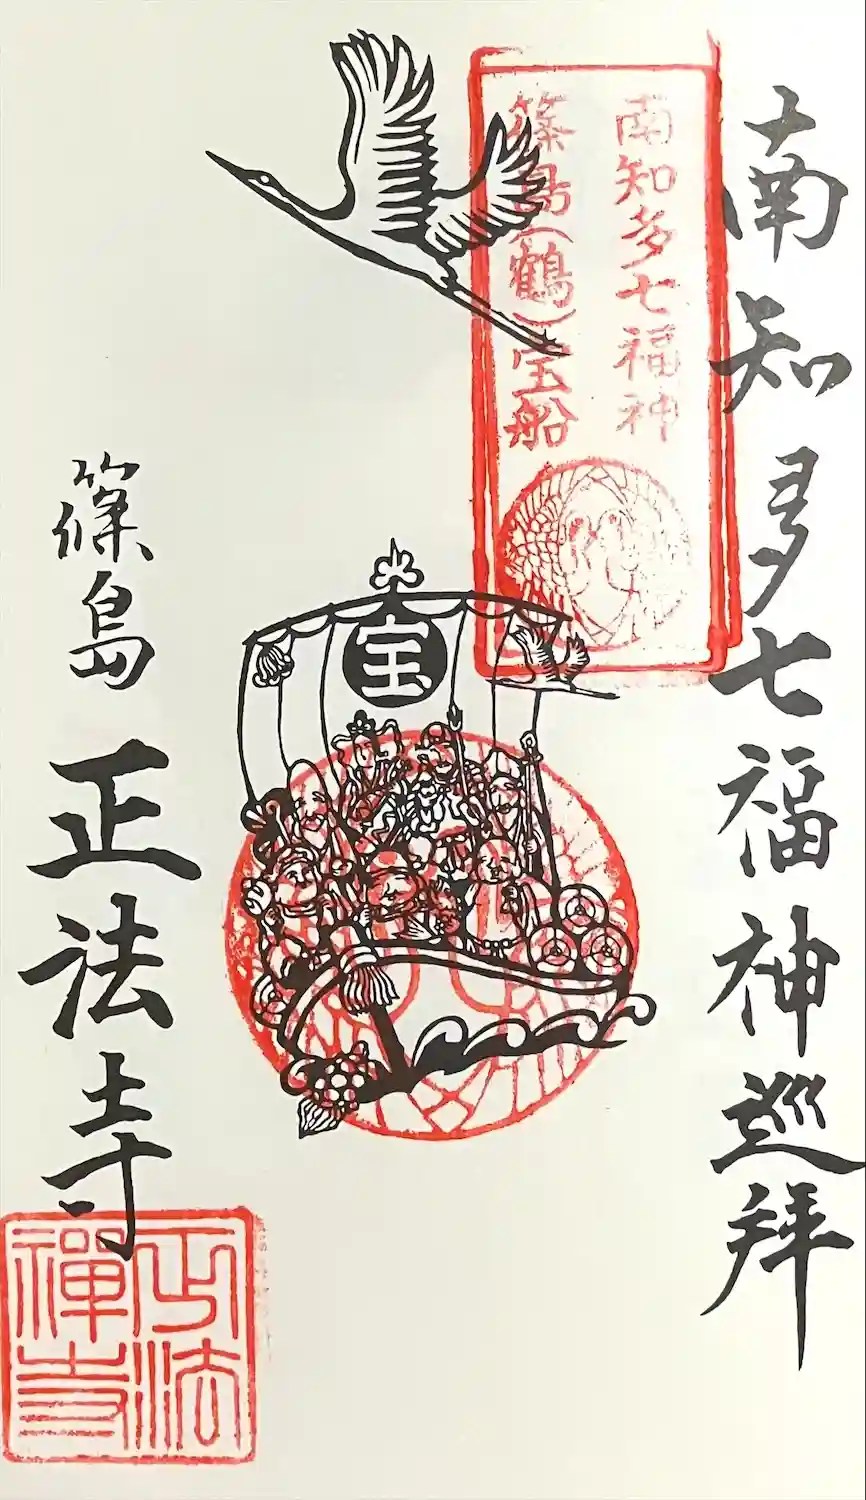 南知多七福神巡拝
南知多七福神
篠島(鶴)宝船
宝
篠島 正法寺
正法
禅寺